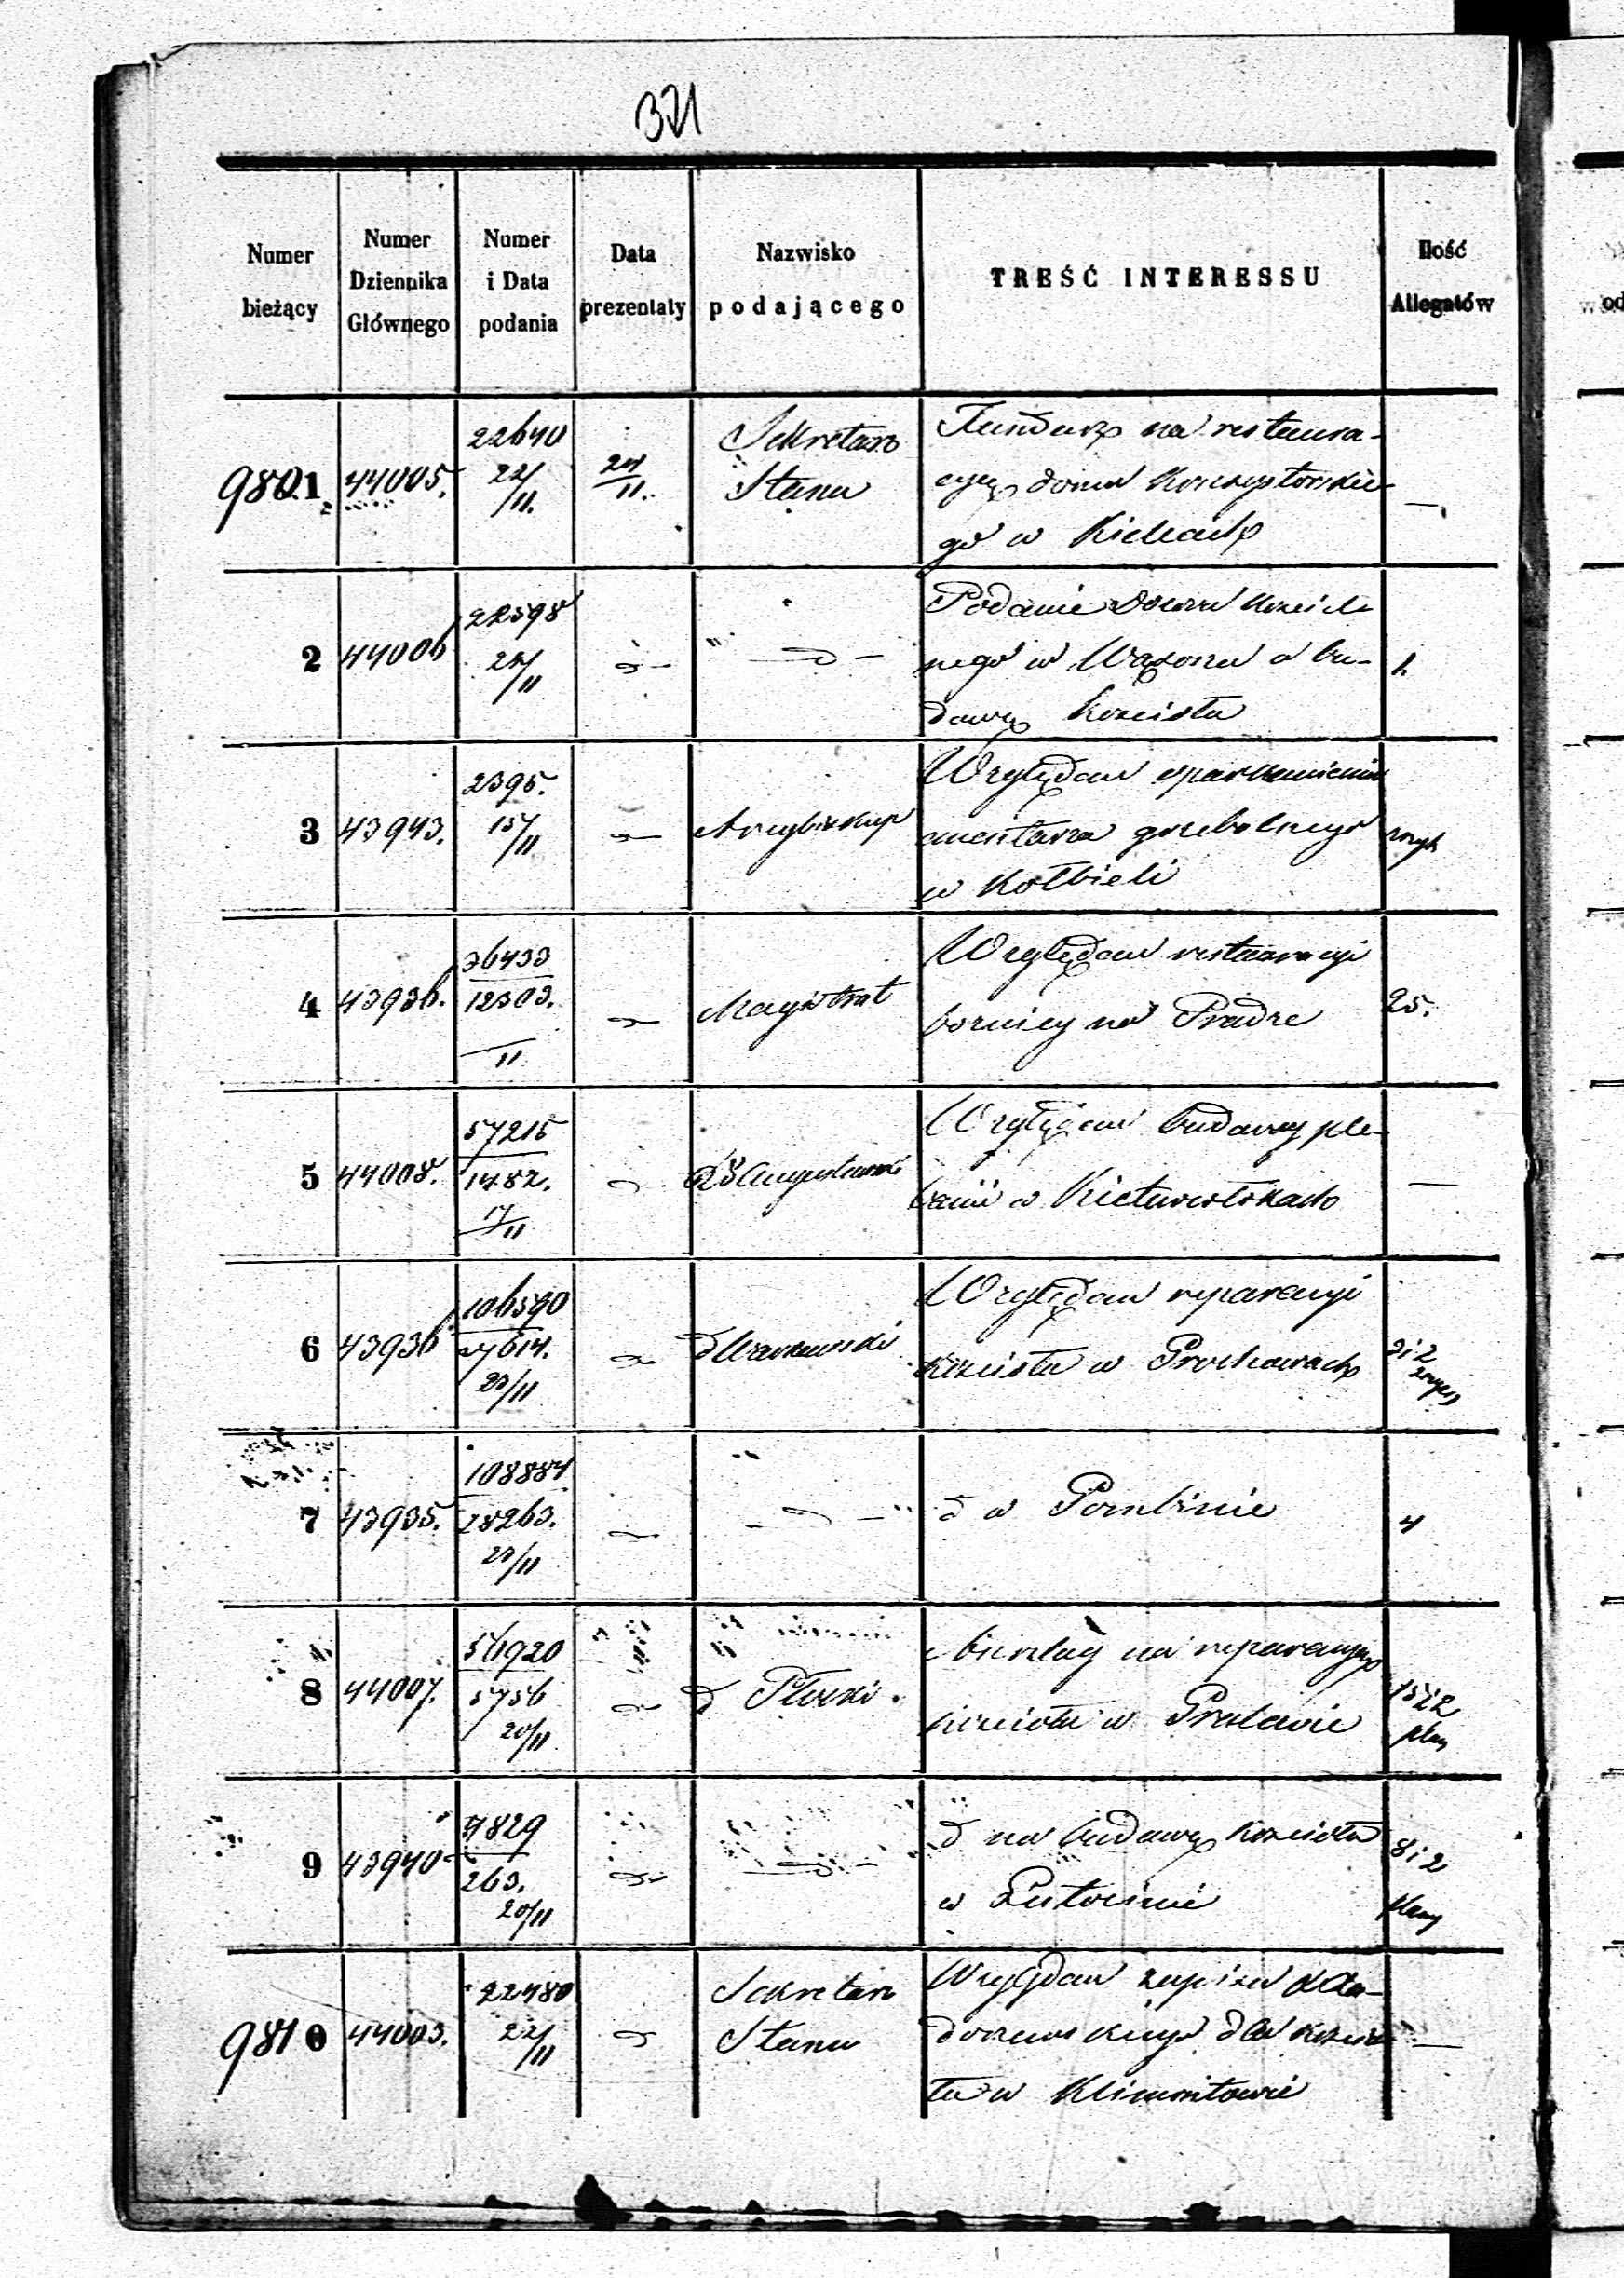 321
Numer bieżący
Numer Dziennika Głównego
Numer i Data podania
Data prezentaty
Nazwisko podającego
TREŚĆ INTERESSU
Ilość Allegatów
9801 44005. 22640 22/11. 24/11. Sekretarz Stanu
Fundusz na restaura-
cyę domu Konsystorskie-
go w Kielcach
—
2 44006 22598 22/11
Podanie Dozoru Kościel-
nego w Wąsoszu o bu-
dowę Kościoła
1.
3 43943. 2395. 15/11 Arcybiskup
Względem oparkanienia
cmentarza grzebalnego
w Kołbieli
4 43936. 36433 12303. /11 Magistrat
Względem restauracyi
bożnicy na Pradze
25.
5 44008. 57215 1482. 17/11 RG Augustowski
Względem budowy ple-
banii w Kietowiszkach
—
6 43936 106590 27614. 23/11 d Warszawski
Względem reparacyi
Kościoła w
7 43935. 108884 28263. 23/11
d w Pombinie
4
8 44007. 56920 5756 20/11 d Płocki
Anszlag na reparacyę
kościoła w
15 i 2
plan
9 43940 4829 263. 20/11
d na budowę Kościoła
w
8 i 2
plany
9810 44003. 22480 22/11 Sekretarz Stanu
Względem zapisu
dla Kościo-
ła w Klimontowie
—